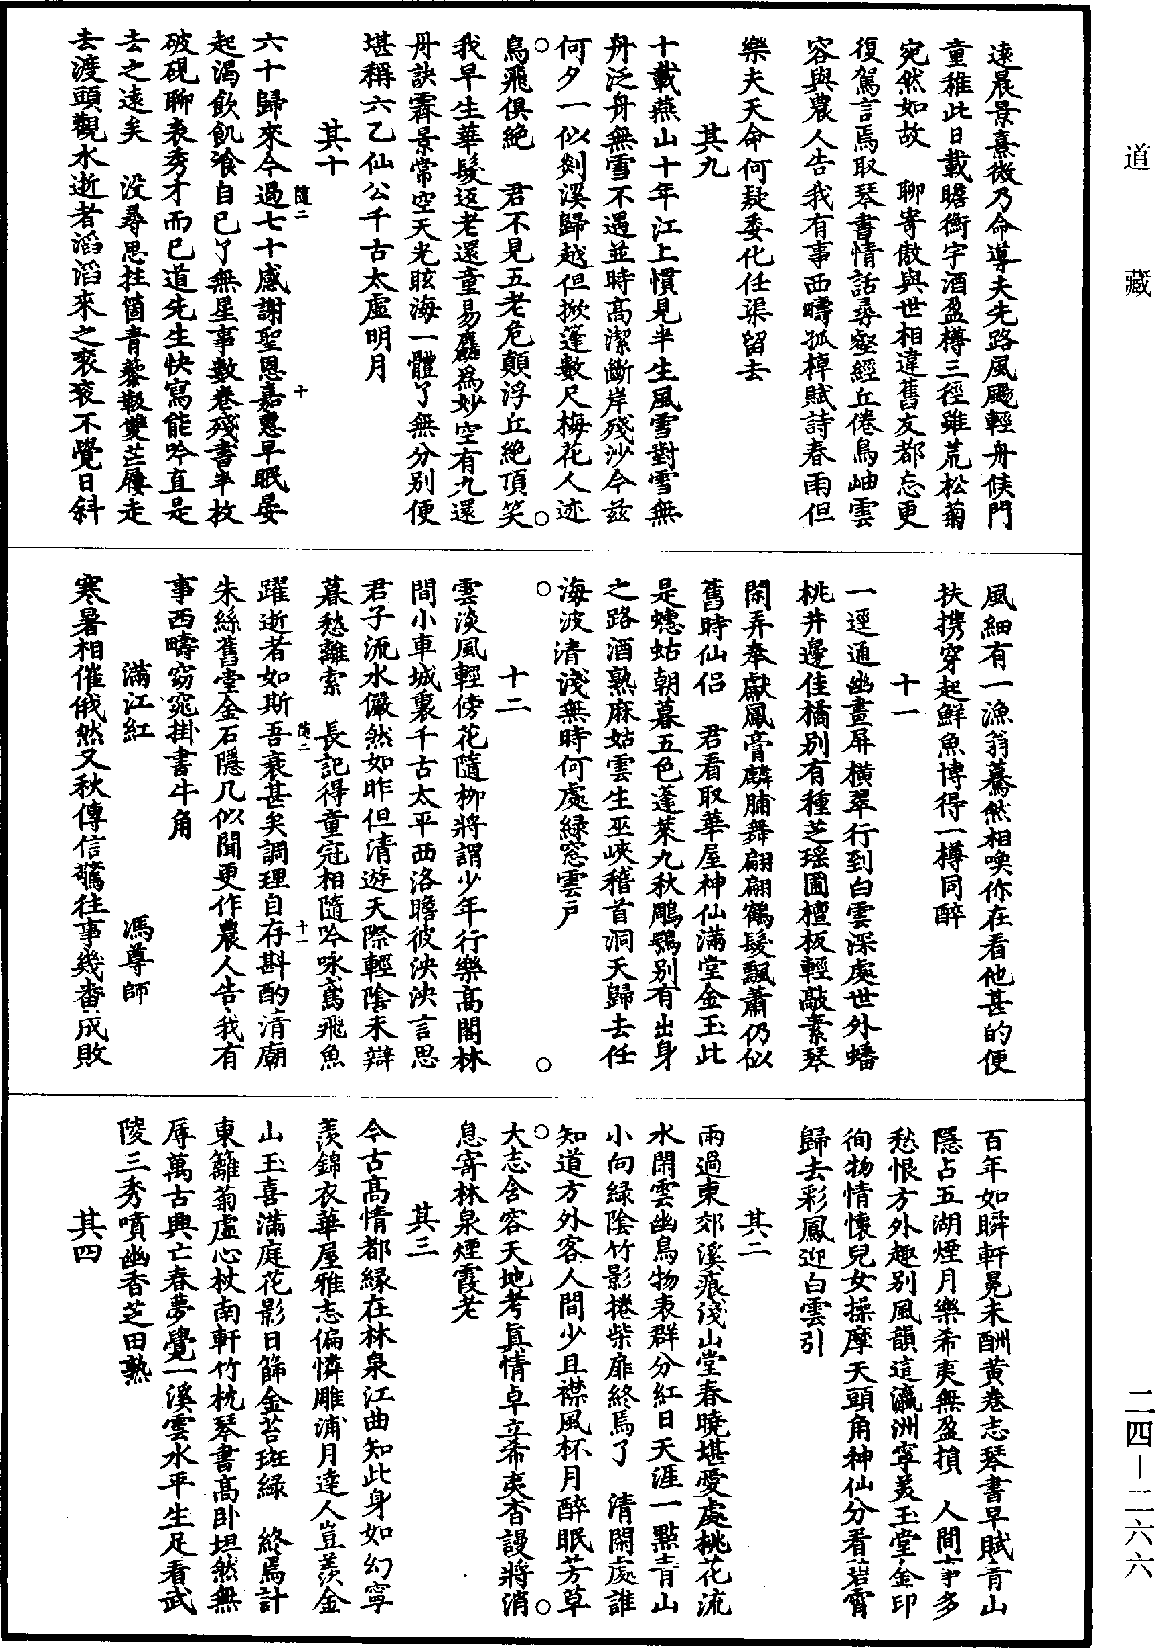 遠晨景熹微乃命導夫先路風颺輕舟候門
童稚此日載瞻衡宇酒盈樽三徑雖荒松菊
宛然如故　聊寄傲與世相違舊友都忘更
復駕言焉取琴書情話尋壑經丘倦鳥岫雲
容與農人告我有事西疇孤棹賦詩春雨但
樂夫天命何疑委化任渠留去
其九
十載燕山十年江上慣見半生風雪對雪無
舟泛舟無雪不遇並時高潔斷岸殘沙今玆
何夕一似剡溪歸越但掀蓬數尺梅花人迹
鳥飛俱絶　君不見五老危顛浮丘絶頂笑
我早生華髮返老還童易麤爲妙空有九還
丹訣霽景常空天光眩海一體了無分別便
堪稱六乙仙公千古太虛明月
其十
六十歸來今過七十感謝聖恩嘉惠早眠晏
起渴飲飢飡自已了無星事數卷殘書半枚
破硯聊表秀才而已道先生快寫能吟直是
去之遠矣　没尋思拄箇青藜靸雙芒屨走
去渡頭觀水逝者滔滔來之衮衮不覺日斜
隨二
十
風細有一漁翁驀然相喚你在看他甚的便
扶携穿起鮮魚博得一樽同醉
十一
一逕通幽畫屏橫翠行到白雲深處世外蟠
桃井邊佳橘别有種芝瑶圃檀板輕敲素琴
閑弄奉獻鳳膏麟脯舞翩翩鶴髮飄蕭仍似
舊時仙侶　君看取華屋神仙滿堂金玉此
是蟪蛄朝暮五色蓬萊九秋鵰鶚别有出身
之路酒熟麻姑雲生巫峽稽首洞天歸去任
海波清淺無時何處綠窓雲戶
十二
雲淡風輕傍花隨柳將謂少年行樂高閣林
間小車城裏千古太平西洛瞻彼泱泱言思
君子流水儼然如昨但清遊天際輕陰未辯
暮愁離索　長記得童冠相隨吟咏鳶飛魚
躍逝者如斯吾衰甚矣調理自存斟酌清廟
朱絲舊堂金石隱几似聞更作農人告我有
事西疇窈窕掛書牛角
滿江紅　馮尊師
寒暑相催俄然又秋傳信驚往事幾畨成敗
隨二
十一
百年如瞬軒冕未酬黄卷志琴書早賦青山
隱占五湖煙月樂希夷無盈損　人間事多
愁恨方外趣别風韻這瀛洲寧羡玉堂金印
徇物情懷兒女操摩天頭角神仙分看碧霄
歸去彩鳳迎白雲引
其二
雨過東郊溪痕淺山堂春曉堪愛處桃花流
水閑雲幽鳥物表群分紅日天涯一點青山
小向綠陰竹影捲柴扉終焉了　清閑處誰
知道方外客人間少且襟風杯月醉眠芳草
大志含容天地考眞情卓立希夷杳謾將消
息寄林泉煙霞老
其三
今古高情都緣在林泉江曲知此身如幻寧
羨錦衣華屋雅志偏憐雕浦月達人豈羨金
山玉喜滿庭花影日篩金苔斑綠　終焉計
東籬菊虛心杖南軒竹枕琴書高卧坦然無
辱萬古興亡春夢覺一溪雲水平生足看武
陵三秀噴幽香芝田熟
其四
道藏
二四－二六六